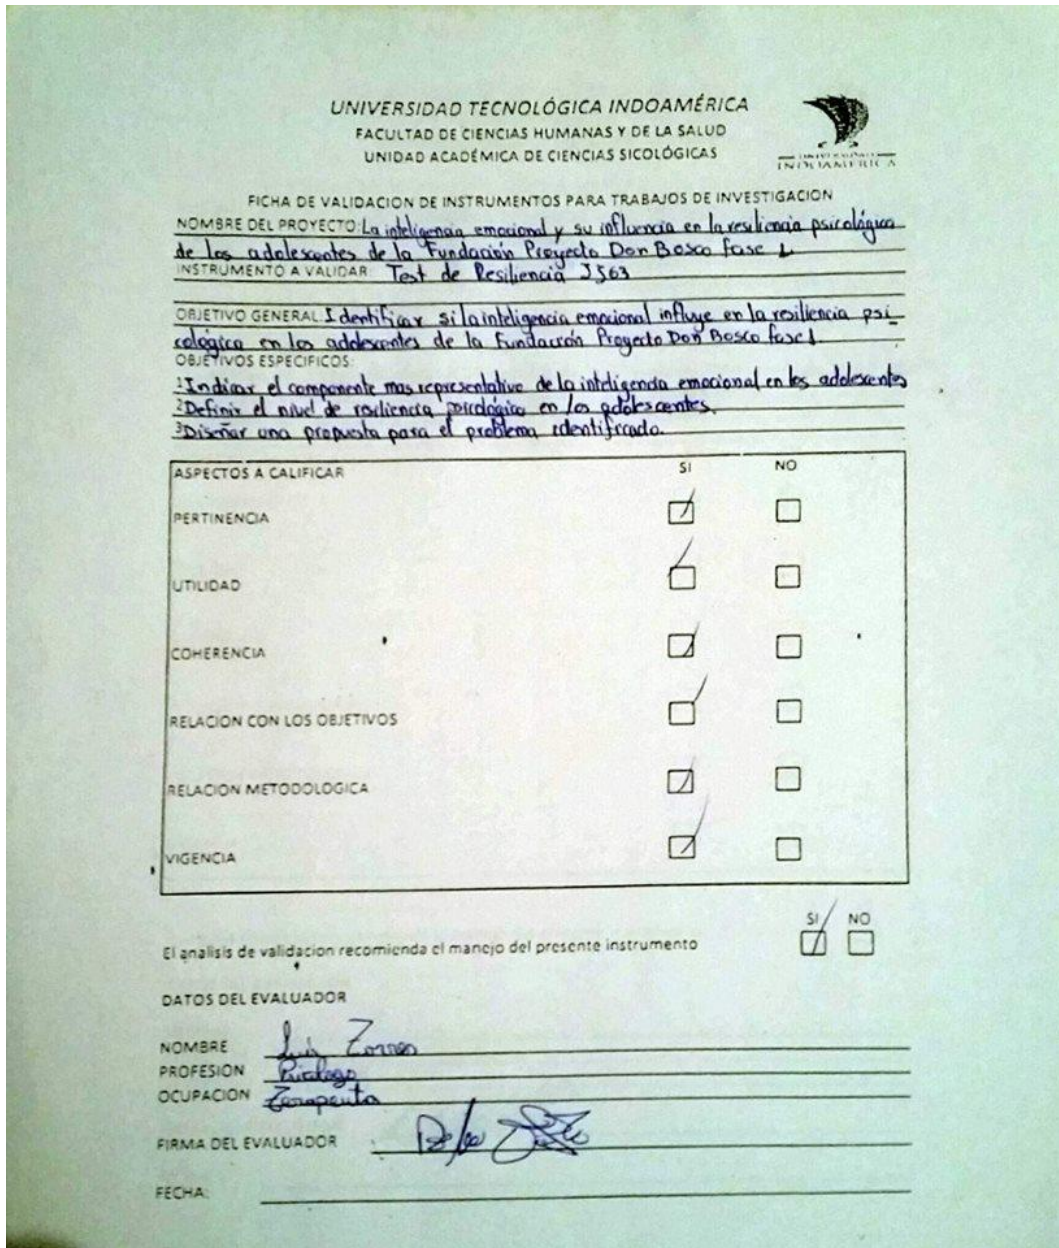 UNIVERSIDAD TECNOLÓGICA INDOAMÉRICA
FACULTAD DE CIENCIAS HUMANAS Y DE LA SALUD
UNIDAD ACADÉMICA DE CIENCIAS SICOLÓGICAS
UNIVERSIDAD
INDOAMÉRICA
FICHA DE VALIDACION DE INSTRUMENTOS PARA TRABAJOS DE INVESTIGACION
NOMBRE DEL PROYECTO: La inteligencia emocional y su influencia en la resiliencia psicológica
de los adolescentes de la Fundación Proyecto Don Bosco fase 1
INSTRUMENTO A VALIDAR: Test de Resiliencia J563
OBJETIVO GENERAL: Identificar si la inteligencia emocional influye en la resiliencia psi
cologica en los adolescentes de la Fundación Proyecto Don Bosco fase 1.
OBJETIVOS ESPECIFICOS:
1 Indicar el componente mas representativo de la inteligencia emocional en los adolescentes
2 Definir el nivel de resiliencia psicológica en los adolescentes.
3 Diseñar una propuesta para el problema identificado.
ASPECTOS A CALIFICAR SI NO
PERTINENCIA
UTILIDAD
COHERENCIA
RELACION CON LOS OBJETIVOS
RELACION METODOLOGICA
VIGENCIA
SI NO
El analisis de validacion recomienda el manejo del presente instrumento
DATOS DEL EVALUADOR
NOMBRE Luis Torres
PROFESION Psicologo
OCUPACION Terapeuta
FIRMA DEL EVALUADOR
FECHA: